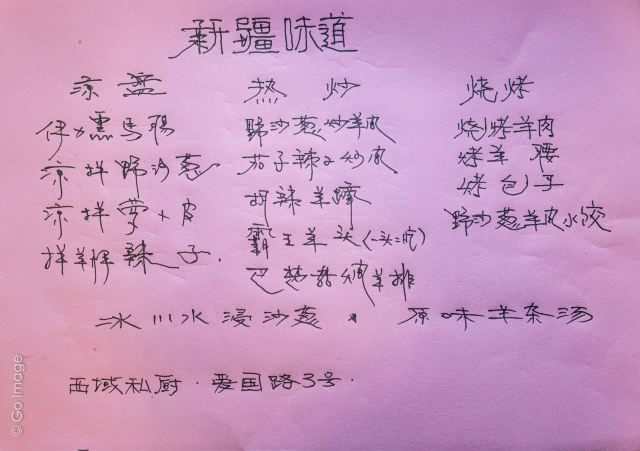 新疆味道
凉盘
伊力熏马肠
凉拌野沙葱
凉拌萝卜皮
拌 辣子.
热炒
野沙葱炒羊皮
茄子辣子炒皮
胡辣羊蹄
霸王羊头(一头二吃)
巴楚 羊排
烧烤
烧烤羊肉
烤羊腰
烤包子
野沙葱羊皮水饺
冰川水浸沙葱 · 原味羊杂汤
西域私厨·爱国路3号·
© Go Image